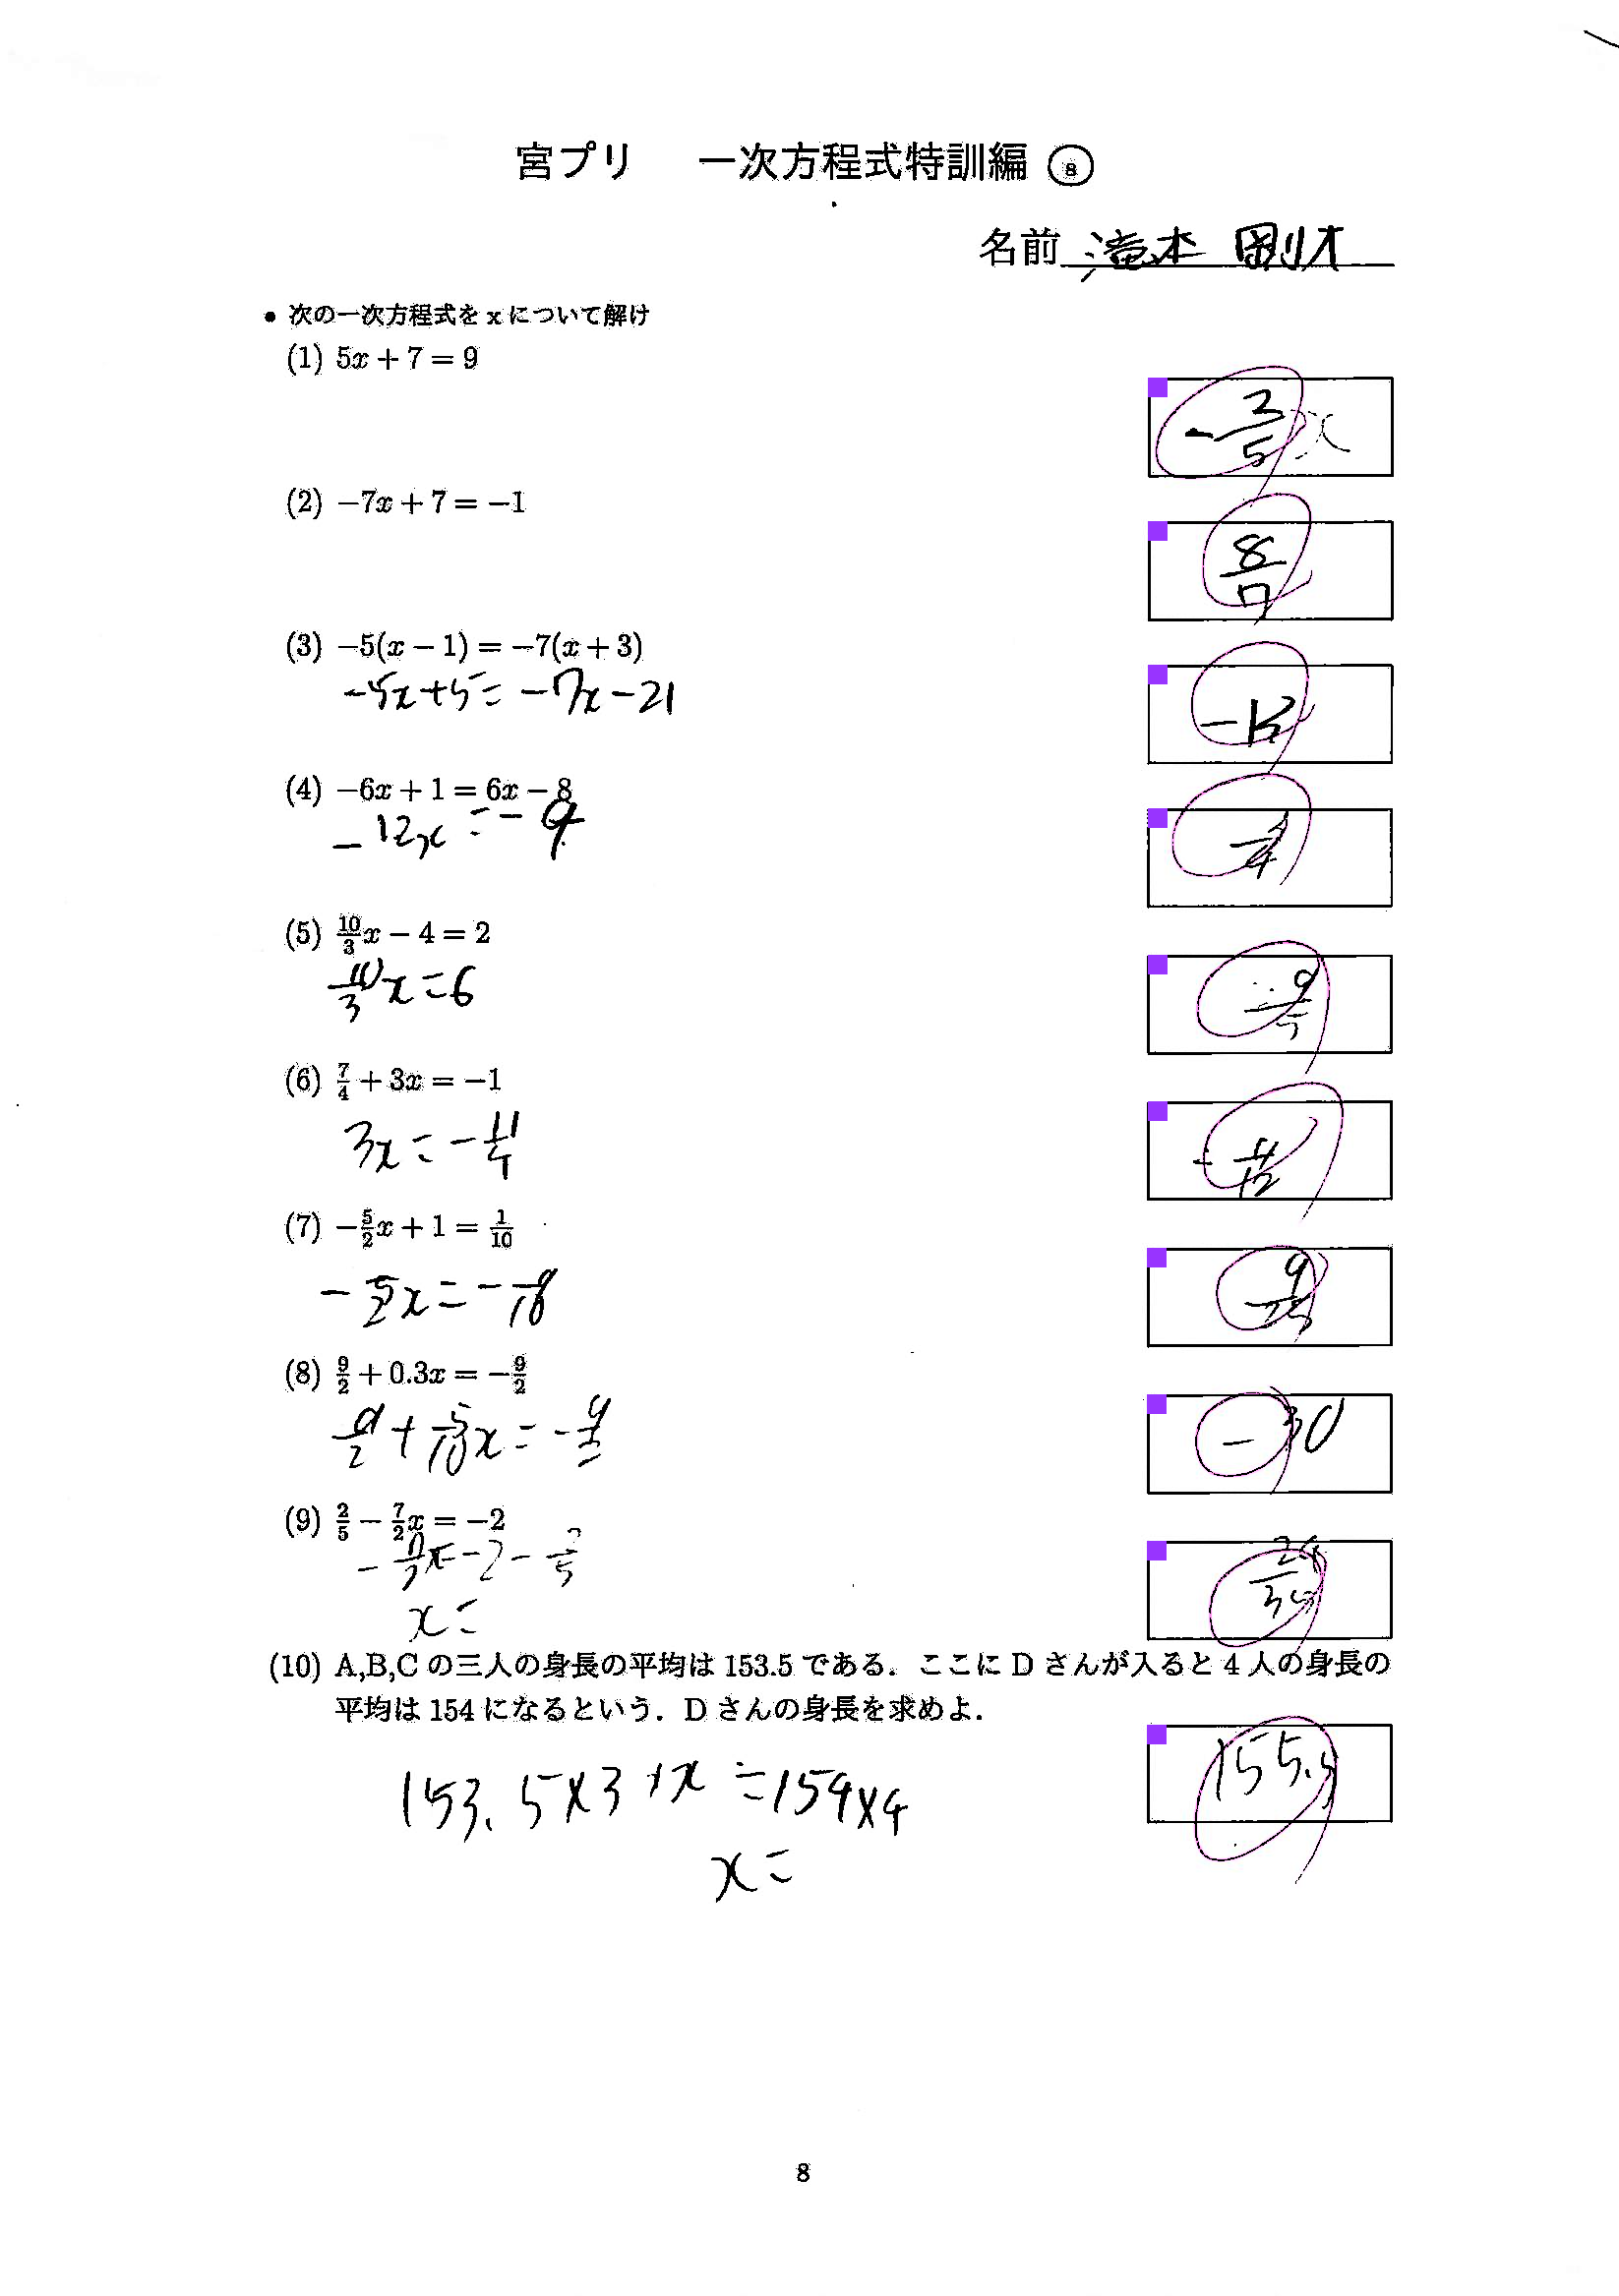 宮プリ 一次方程式特訓編 ⑧
名前 滝本 剛才
• 次の一次方程式を x について解け
(1) 5x + 7 = 9
-2/5
(2) −7x + 7 = −1
8/7
(3) −5(x − 1) = −7(x + 3)
-5x+5=-7x-21
-13
(4) −6x + 1 = 6x − 8
-12x=-9
3/4
(5) 10/3 x − 4 = 2
10/3 x=6
9/5
(6) 7/4 + 3x = −1
3x=-11/4
-11/12
(7) −5/2 x + 1 = 1/10
-5/2 x=-9/10
9/25
(8) 9/2 + 0.3x = −9/2
-30
(9) 2/5 − 7/2 x = −2
-7/2 x=-2-2/5
x=
24/35
(10) A,B,C の三人の身長の平均は 153.5 である．ここに D さんが入ると 4 人の身長の
平均は 154 になるという．D さんの身長を求めよ．
155.5
153.5×3+x=154×4
x=
8